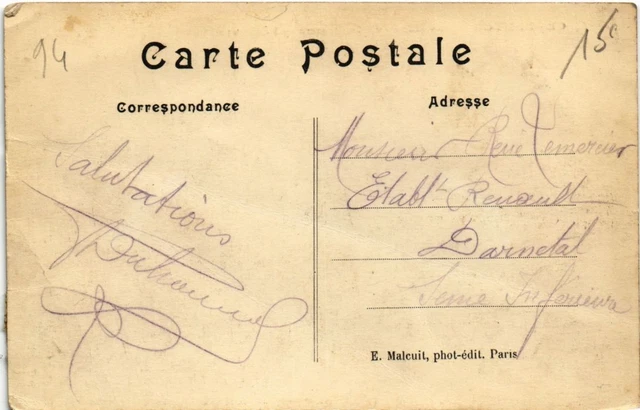 94
15c
Carte Postale
Correspondance
Adresse
Salutations
Monsieur René Lemercier
Etablts Renault
Darnetal
Seine Inferieure
E. Malcuit, phot-édit. Paris